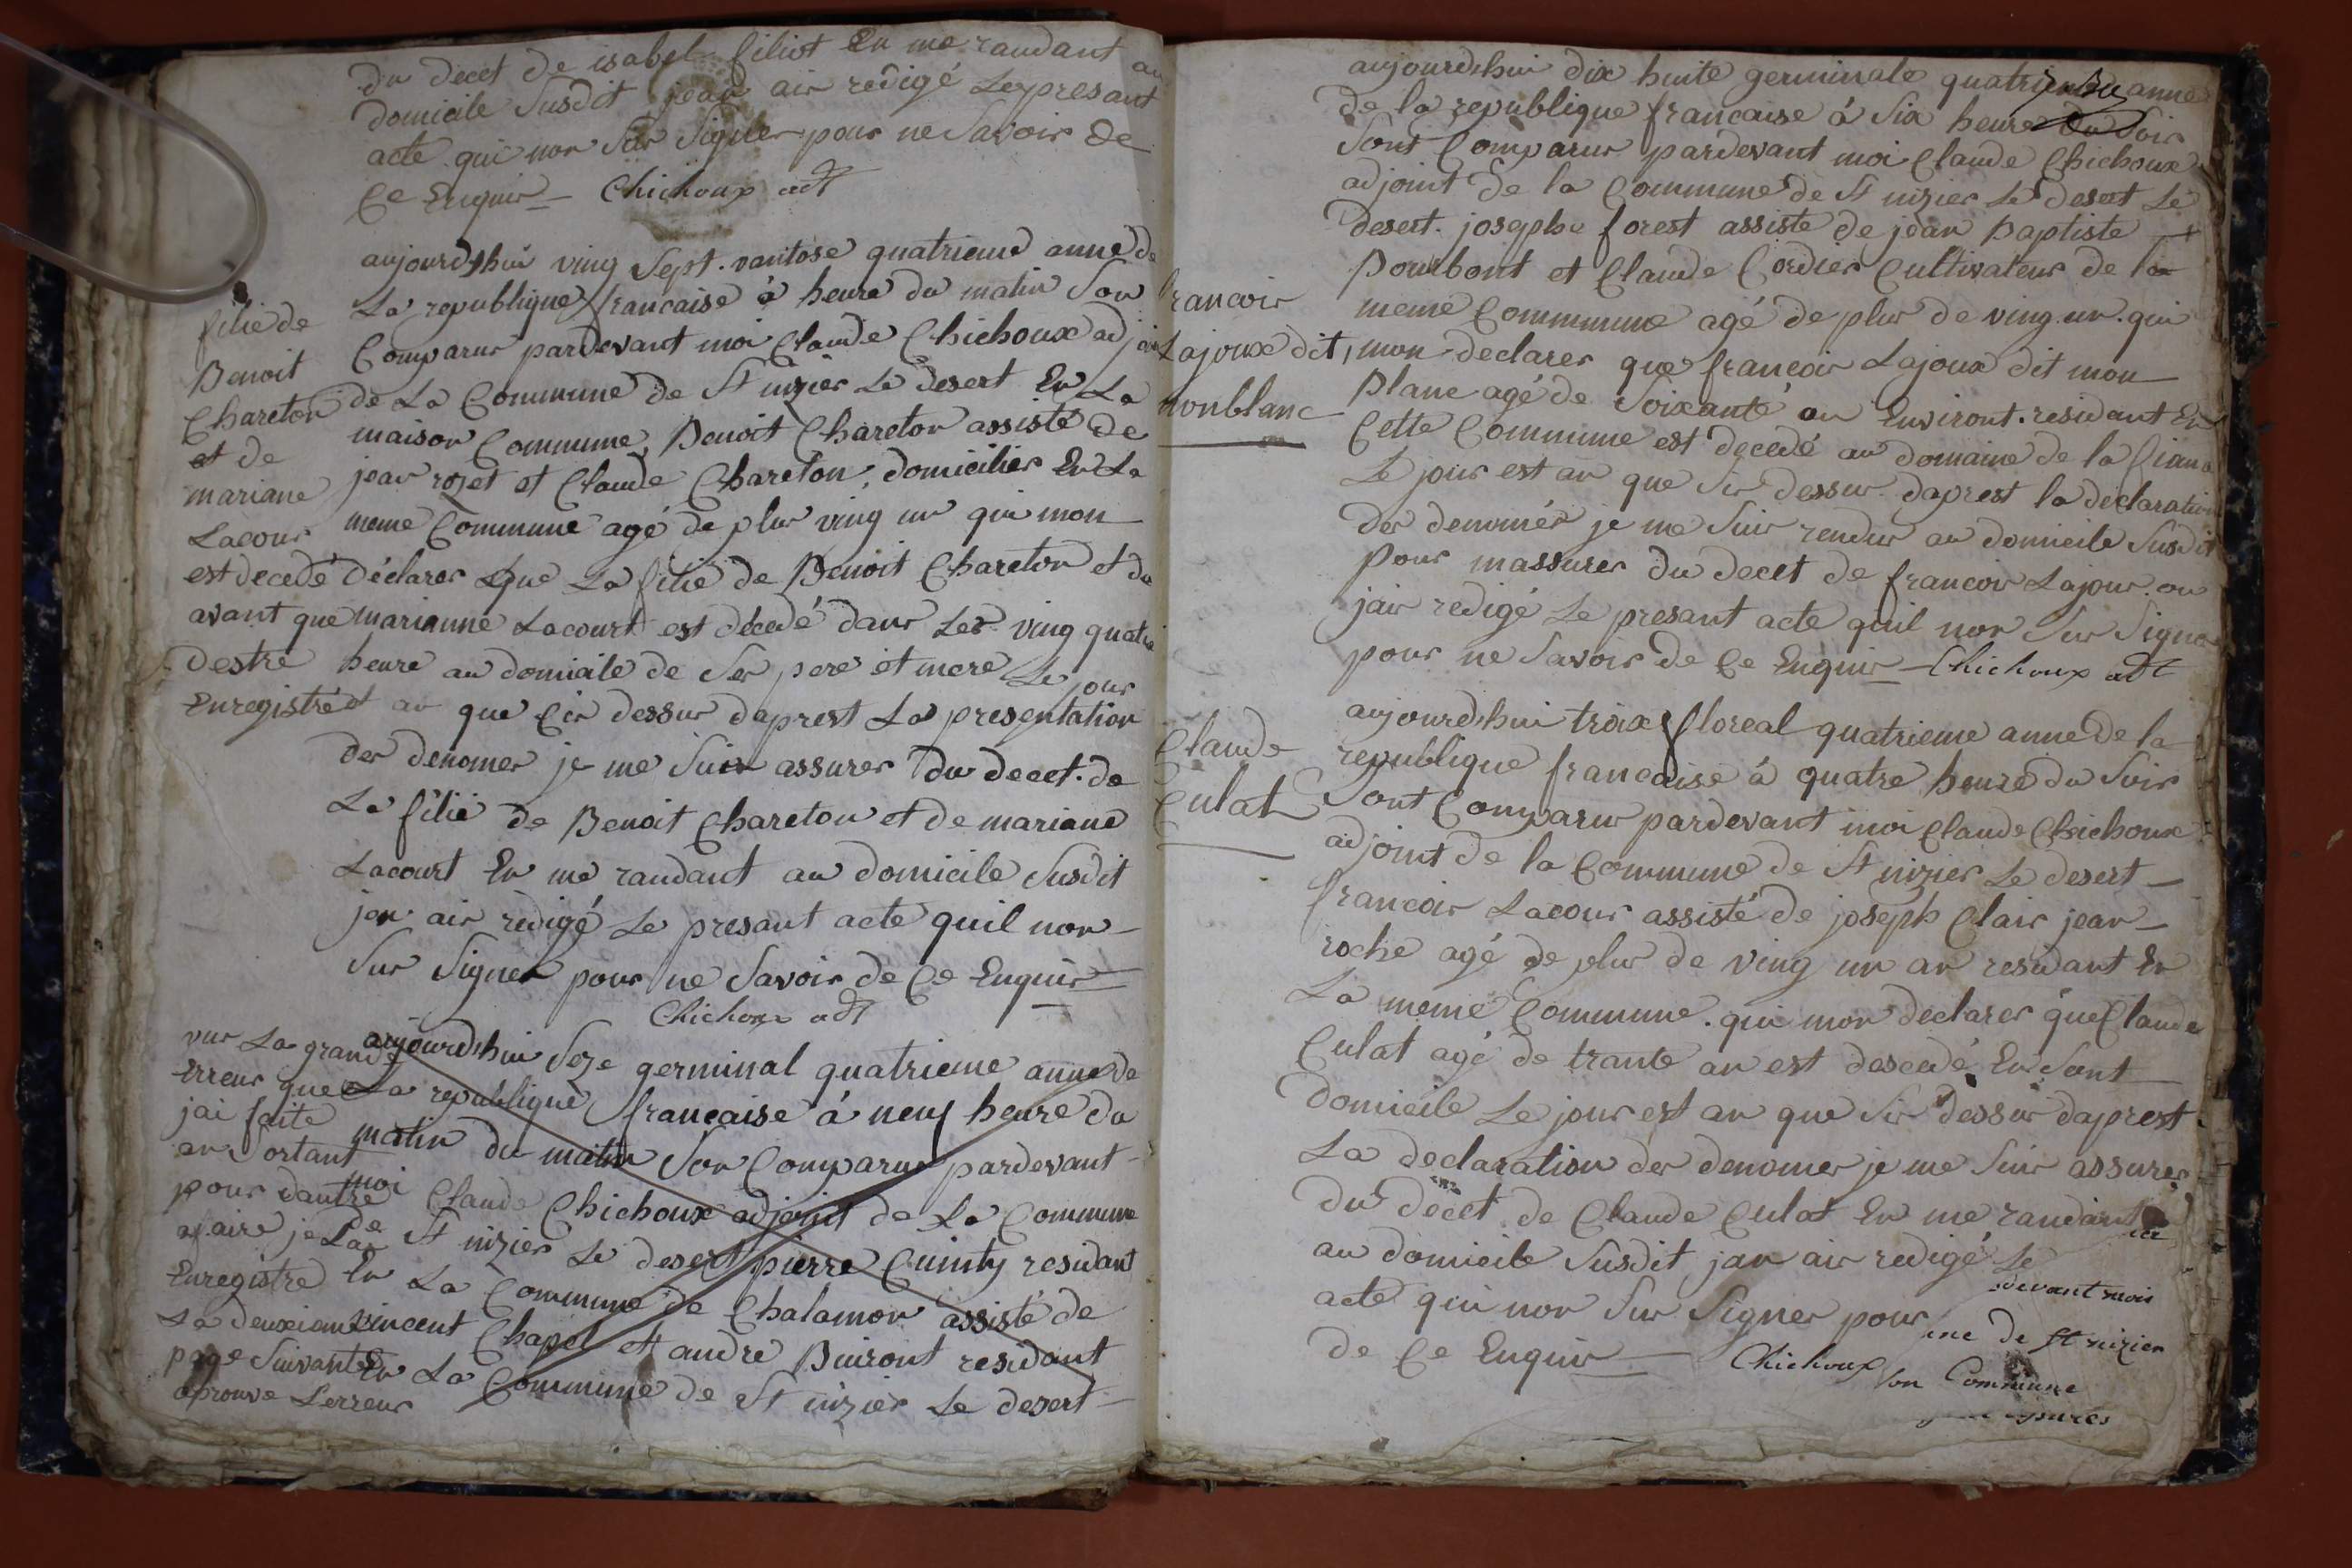 du decet de isabel filiot En me randant au
domicile Susdit jean air redigé Le presant
acte qui non Sur Signer pour ne Savoir de
Ce Enquir Chichoux adt
aujourdhui ving Sept vantose quatrieme anne de
La republique francaise à heure du matin Son
Comparur pardevant moi Claude Chichoux adjoin
de La Commune de St nizier Le desert En La
maison Commune, Benoit Chareton assisté de
jean rozet et Claude Chareton, domicilier En La
meme Commune agé de plur ving un qui mon
déclarer que La filie de Benoit Chareton et de
marianne Lacourt est décedé danr Les ving quatre
heure au domicile de Ser pere et mere Le jour
et an que Cir dessur daprest La presentation
der denomer je me Suir assurer du decet de
La filie de Benoit Chareton et de mariane
Lacourt En me randant au domicile Susdit
jen air redigé Le presant acte quil non
Sur Signer pour ne Savoir de Ce Enquir
Chichoux adt
filie de
Benoit
Chareton
et de
mariane
Lacour
est decedé
avant que
destre
Enregistré
aujourdhui Seze germinal quatrieme anne de
La republique francaise à neuf heure du
matin du matin Son Comparur pardevant
moi Claude Chichoux adjoint de La Commune
de St nizier Le desert pierre Cuinty residant
En La Commune de Chalamon assisté de
vincent Chapel et andre Buiront residant
En La Commune de St nizier Le desert
vur La grande
Erreur que
jai faite
an Sortant
pour dautre
afaire je Lai
Enregistre
La deuxieme
page Suivante
aprouve L'erreur
aujourdhui dix huite germinale quatrieme anne
de la republique francaise à Six heure du Soir
Sont Comparur pardevant moi Claude Chichoux
adjoint de la Commune de St nizier Le desert Le
desert. josephe forest assiste de jean Baptiste
Bourbont et Claude Cordier Cultivateur de la
meme Commmune agé de plur de ving un. qui
mon declarer que francoir Lajoux dit mon
Blanc agé de Soixante an Environt. residant En
Cette Commune est decedé au domaine de la
Le jour est an que Sir dessur daprest la declaration
der denomér je me Suir rendur au domicile Susdit
pour massurer du decet de francoir Lajour. ou
jair redigé Le presant acte quil non Sur Signer
pour ne Savoir de Ce Enquir Chichoux adt
francoir
Lajoux dit
monblanc
aujourdhui troix floreal quatrieme anne de la
republique francaise à quatre heure du Soir
Sont Comparur pardevant moi Claude Chichoux
adjoint de la Commune de St nizier Le desert
francoir Lacour assisté de joseph Clair jean
roche agé de plur de ving un an residant En
La meme Commune. qui mon declarer que Claude
Culat agé de trante an est descedé En Sont
domicile Le jour est an que Sir dessur daprest
La declaration der denomer je me Suir assurer
du decet de Claude Culat En me randant
au domicile Susdit jan air redigé Le
acte qui non Sur Signer pour
de Ce Enquir Chichoux
Claude
Culat
devant moi
ne de St nizier
son Commune